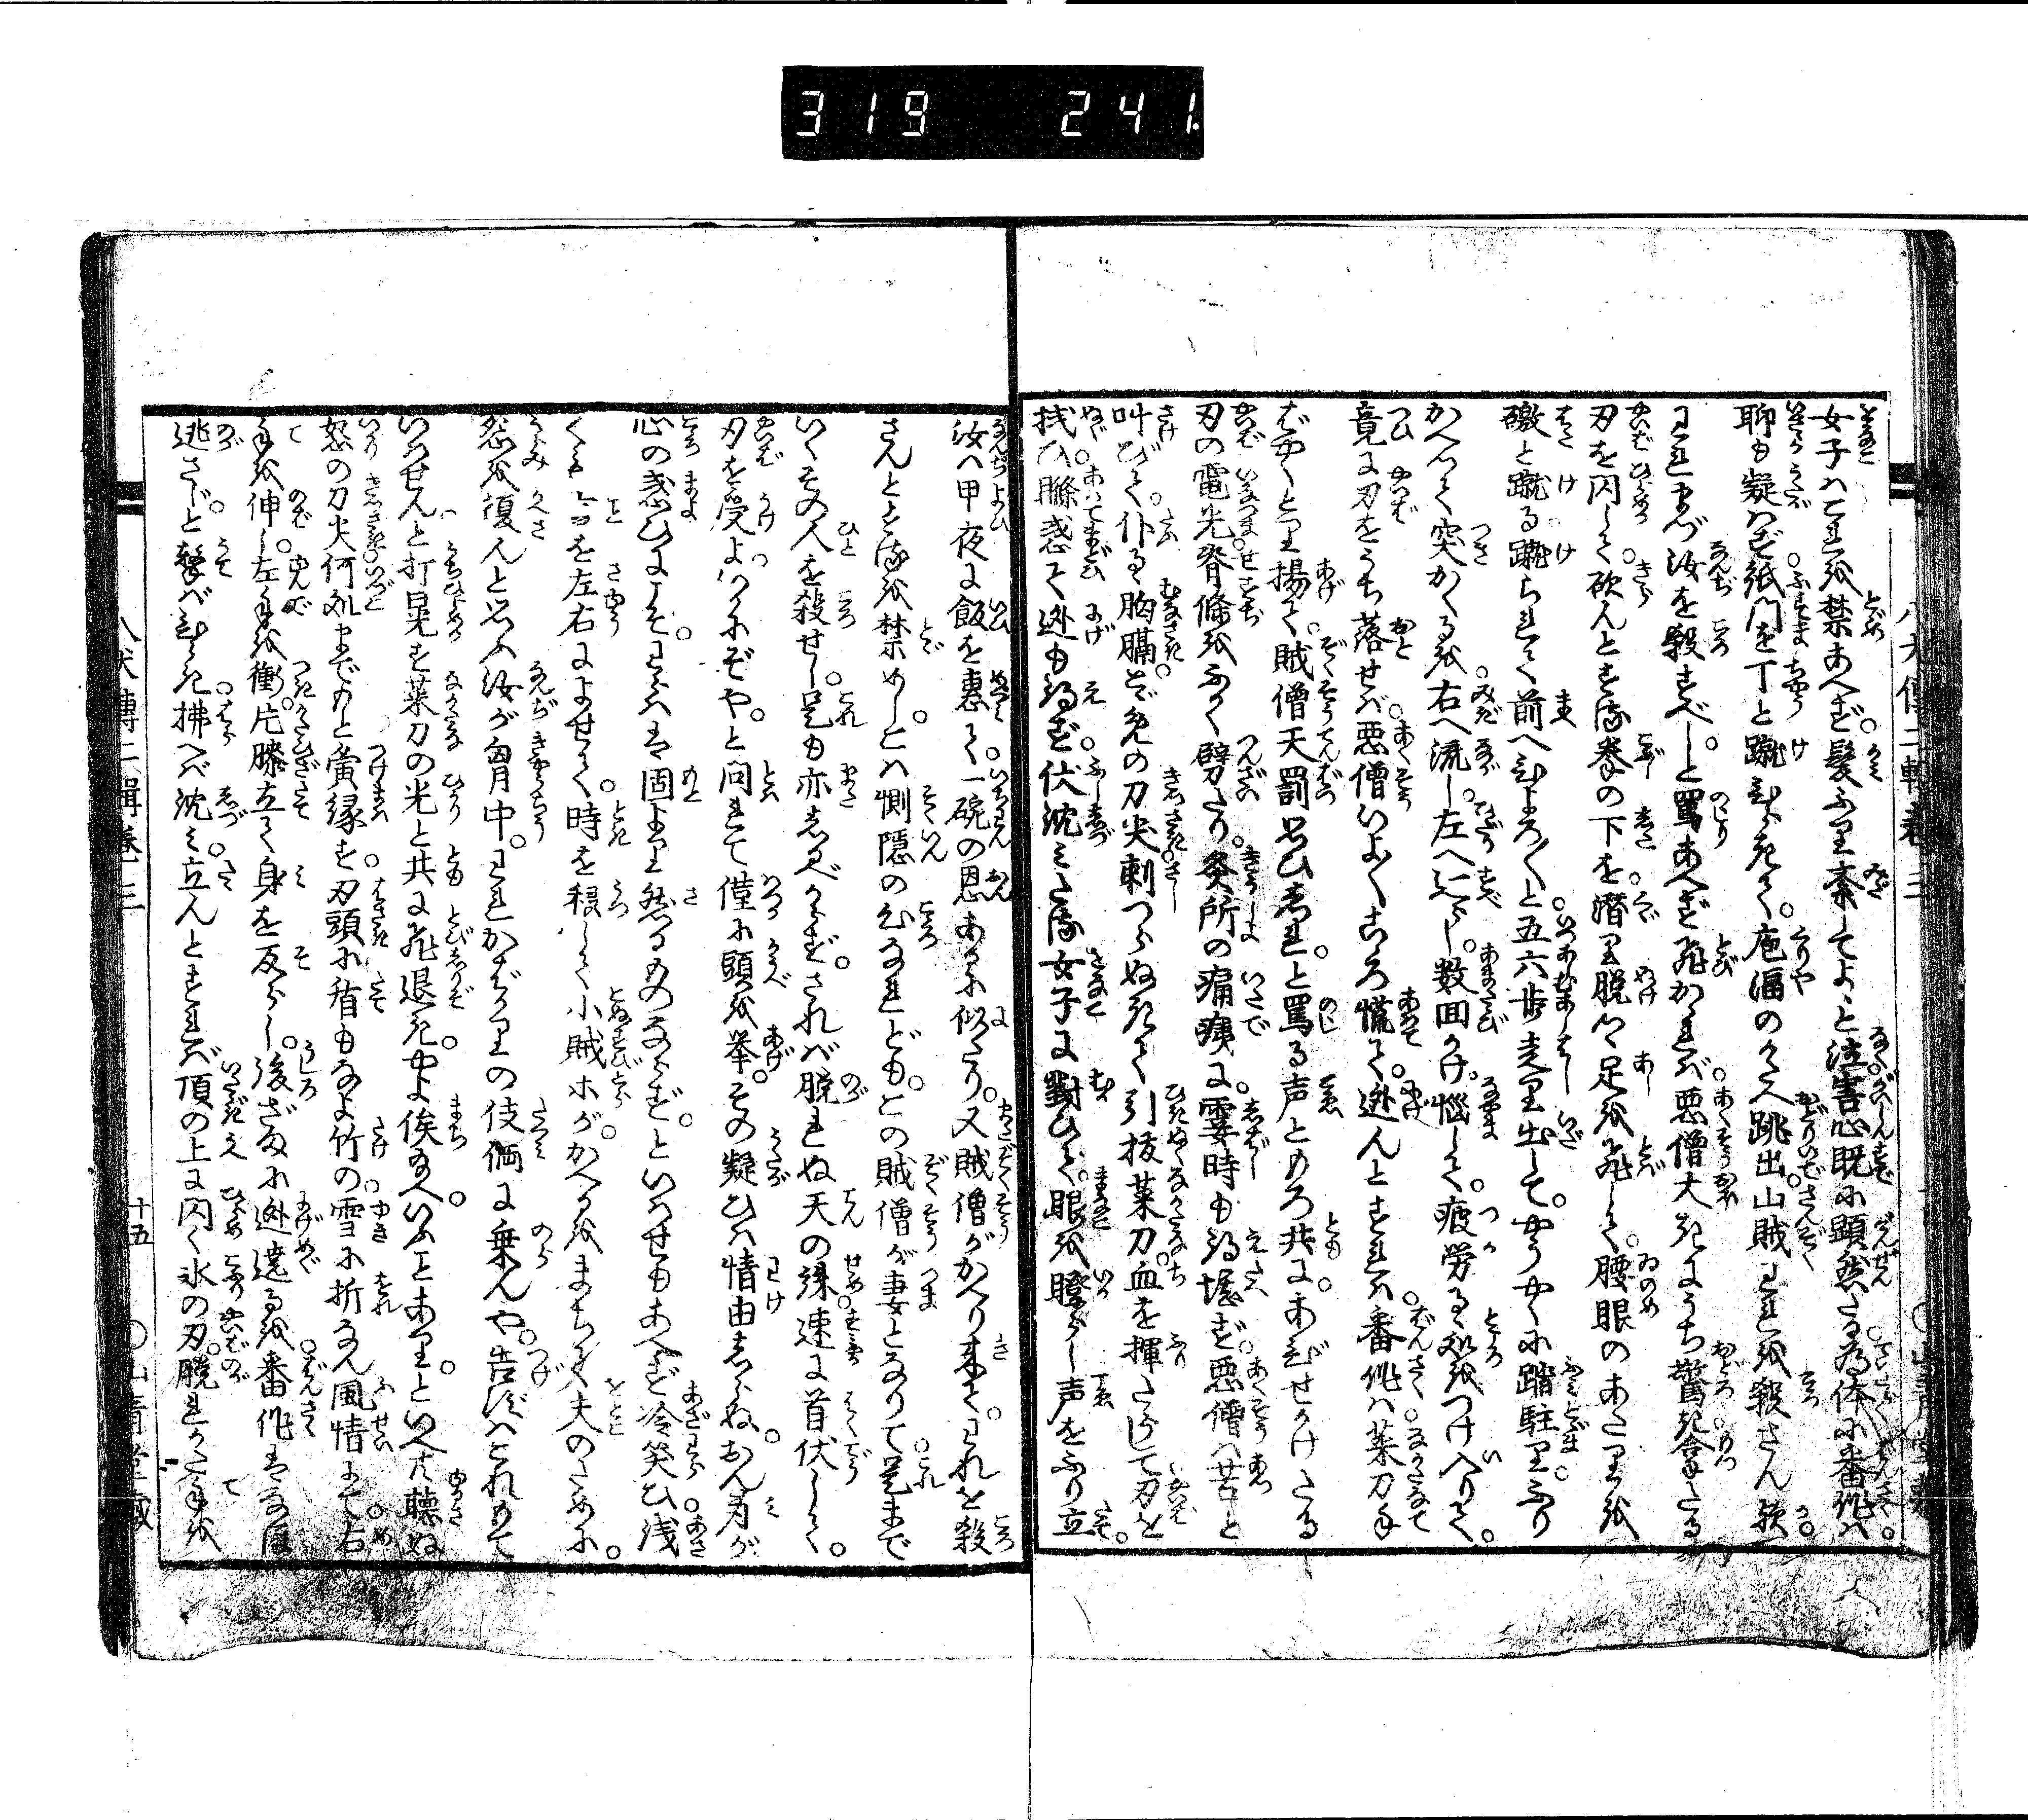 319 241
女子はこれを禁あへず。髪ふり紊してよゝと泣。害心既に顕然たる為体に番作は。
聊も疑はず。紙門を丁と蹴ひらきて。庖湢のかたへ跳出。山賊われを殺さん歟。
われまづ汝を殺すべしと罵あへず飛かゝれば。悪僧大きにうち驚き。拿たる
刃を閃して。砍んとする拳の下を潜り脱つゝ足を飛して。腰眼のあたりを
磤と蹴る。蹴られて前へひよろ〳〵と。五六歩走り出して。やうやくに踏駐り。ふり
かへつて突かくるを。右へ流し。左へ辷らし。数回かけ悩して。疲労るゝ処をつけ入りて。
竟に刃をうち落せば。悪僧いよ〳〵こゝろ慌て。逃んとすれば番作は。菜刀手
ばやくとり揚て。賊僧天罰思ひしれ。と罵る声ともろ共に。あびせかけたる
刃の電光。脊條をふかく劈たり。灸所の痛痍に。霎時も得堪ず。悪僧は苦と
叫びて。仆るゝ胸膈とゞめの刀尖。刺つらぬきて引抜菜刀。血を揮たらして刃を
拭ひ。慌惑て逃も得ず。伏沈みたる女子に対ひて。眼を瞪らし声をふり立。
汝は甲夜に飯を恵て。一碗の恩あるに似たり。又賊僧がかへり来て。われを殺
さんとするを禁めしは。惻隠の心なれども。この賊僧が妻となりて。是まで
いくその人を殺せし。是も亦しるべからず。されば脱れぬ天の誅。速に首伏して。
刃を受よ。いかにぞや。と問れて僅に頭を挙。その疑ひは情由しらぬ。おん身が
心の惑ひにこそ。わらはは固より然るものならず。といはせもあへず冷笑ひ。浅
くも言を左右によせて。時を移して小賊等が。かへるをまちて夫のために。
怨を復んと思ふ汝が胸中。われかばかりの伎倆に乗んや。告ずはこれもて
いはせんと。打晃す菜刀の光と共に飛退き。やよ俟給へ。いふことあり。といへど聴ぬ
怒の刀尖。何処までもと夤縁す。刃頭に楯もなよ竹の。雪に折なん風情にて。右
手を伸し。左手を衝。片膝立て身を反らし。後ざまに逃遶るを。番作はなほ
逃さじ。と撃ばひらき。払へば沈み。立んとすれば頂の上に。閃く氷の刃。脱れかたき手を
八犬伝二輯巻三
十五
山青堂蔵